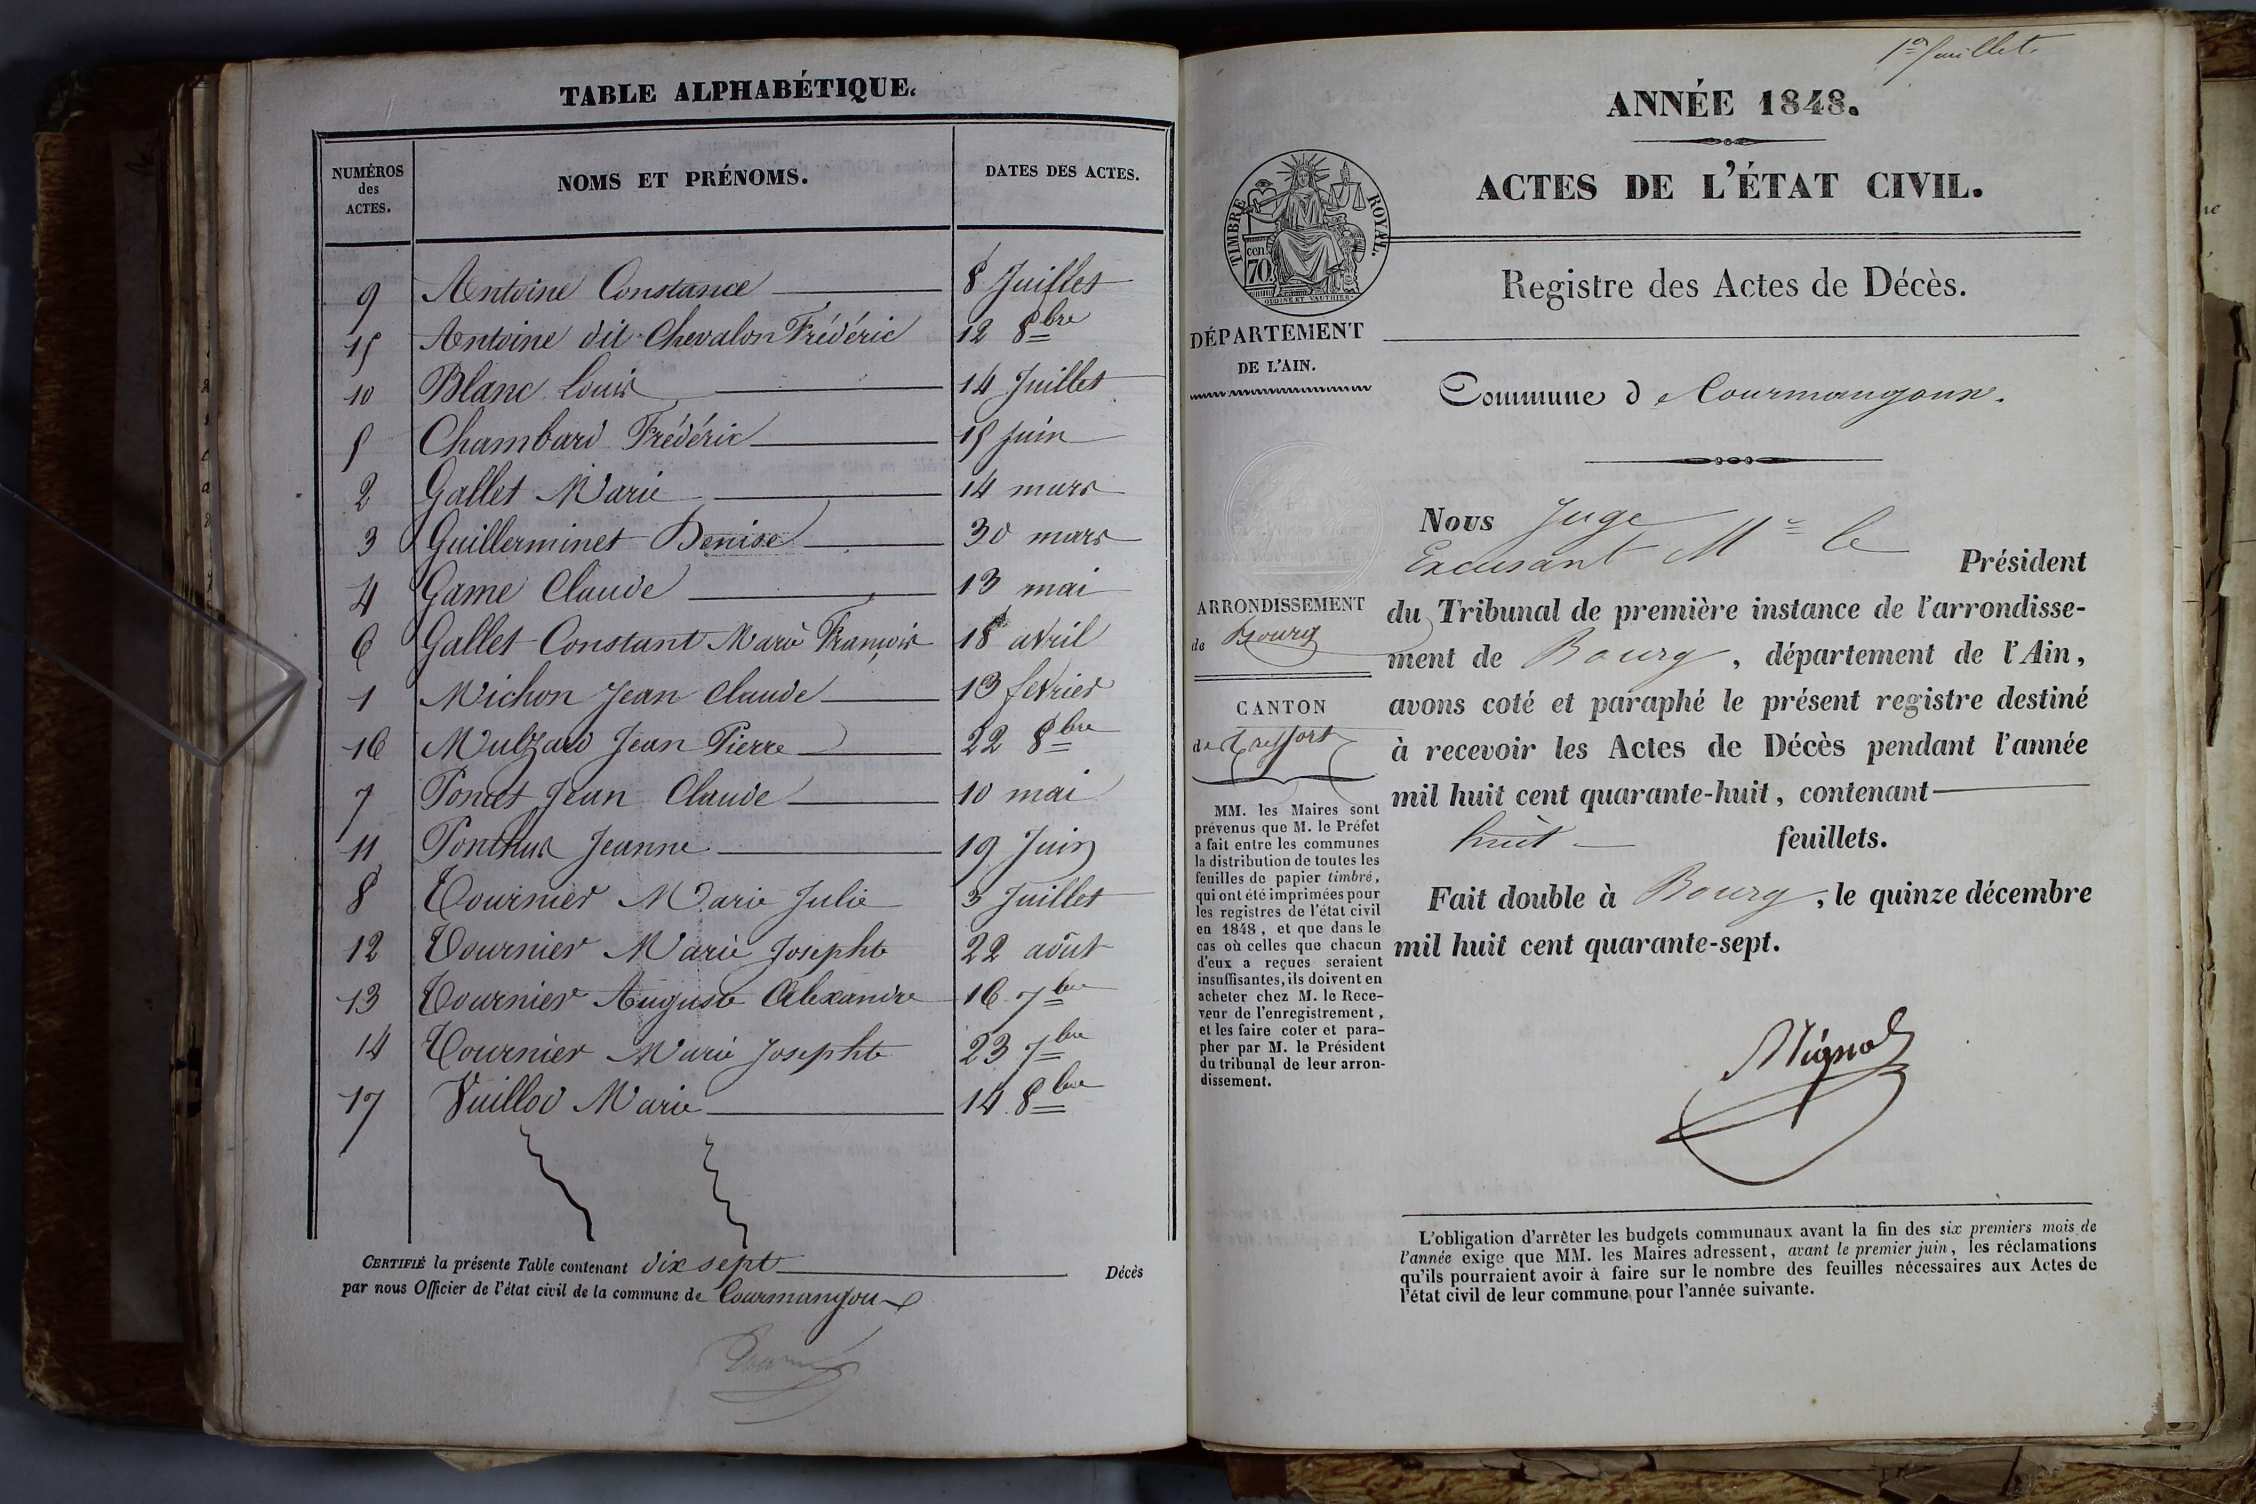 TABLE ALPHABÉTIQUE.
NUMÉROS
des
ACTES.
NOMS ET PRÉNOMS.
DATES DES ACTES.
9 Antoine Constance 8 Juillet
15 Antoine dit Chevalon Frédéric 12 8bre
10 Blanc Louis 14 Juillet
5 Chambard Frédéric 15 Juin
2 Gallet Marie 14 mars
3 Guillerminet Denise 30 mars
4 Game Claude 13 mai
6 Gallet Constant Marie François 18 avril
1 Michon Jean Claude 13 fevrier
16 Mulzard Jean Pierre 22 8bre
7 Poncet Jean Claude 10 mai
11 Ponthus Jeanne 19 Juin
8 Tournier Marie Julie 3 Juillet
12 Tournier Marie Josephte 22 août
13 Tournier Auguste Alexandre 16 7bre
14 Tournier Marie Josephte 23 7bre
17 Vuillod Marie 14 8bre
CERTIFIÉ la présente Table contenant dix sept Décès
par nous Officier de l'état civil de la commune de Courmangoux
1er feuillet.
ANNÉE 1848.
ACTES DE L'ÉTAT CIVIL.
Registre des Actes de Décès.
TIMBRE ROYAL.
cen.
70
DÉPARTEMENT
DE L'AIN.
Commune d Courmangoux.
ARRONDISSEMENT
de Bourg
CANTON
de Treffort
MM. les Maires sont
prévenus que M. le Préfet
a fait entre les communes
la distribution de toutes les
feuilles de papier timbré,
qui ont été imprimées pour
les registres de l'état civil
en 1848, et que dans le
cas où celles que chacun
d'eux a reçues seraient
insuffisantes, ils doivent en
acheter chez M. le Rece-
veur de l'enregistrement,
et les faire coter et para-
pher par M. le Président
du tribunal de leur arron-
dissement.
Nous Juge
Excusant Mr le Président
du Tribunal de première instance de l'arrondisse-
ment de Bourg, département de l'Ain,
avons coté et paraphé le présent registre destiné
à recevoir les Actes de Décès pendant l'année
mil huit cent quarante-huit, contenant
huit feuillets.
Fait double à Bourg, le quinze décembre
mil huit cent quarante-sept.
L'obligation d'arrêter les budgets communaux avant la fin des six premiers mois de
l'année exige que MM. les Maires adressent, avant le premier juin, les réclamations
qu'ils pourraient avoir à faire sur le nombre des feuilles nécessaires aux Actes de
l'état civil de leur commune pour l'année suivante.